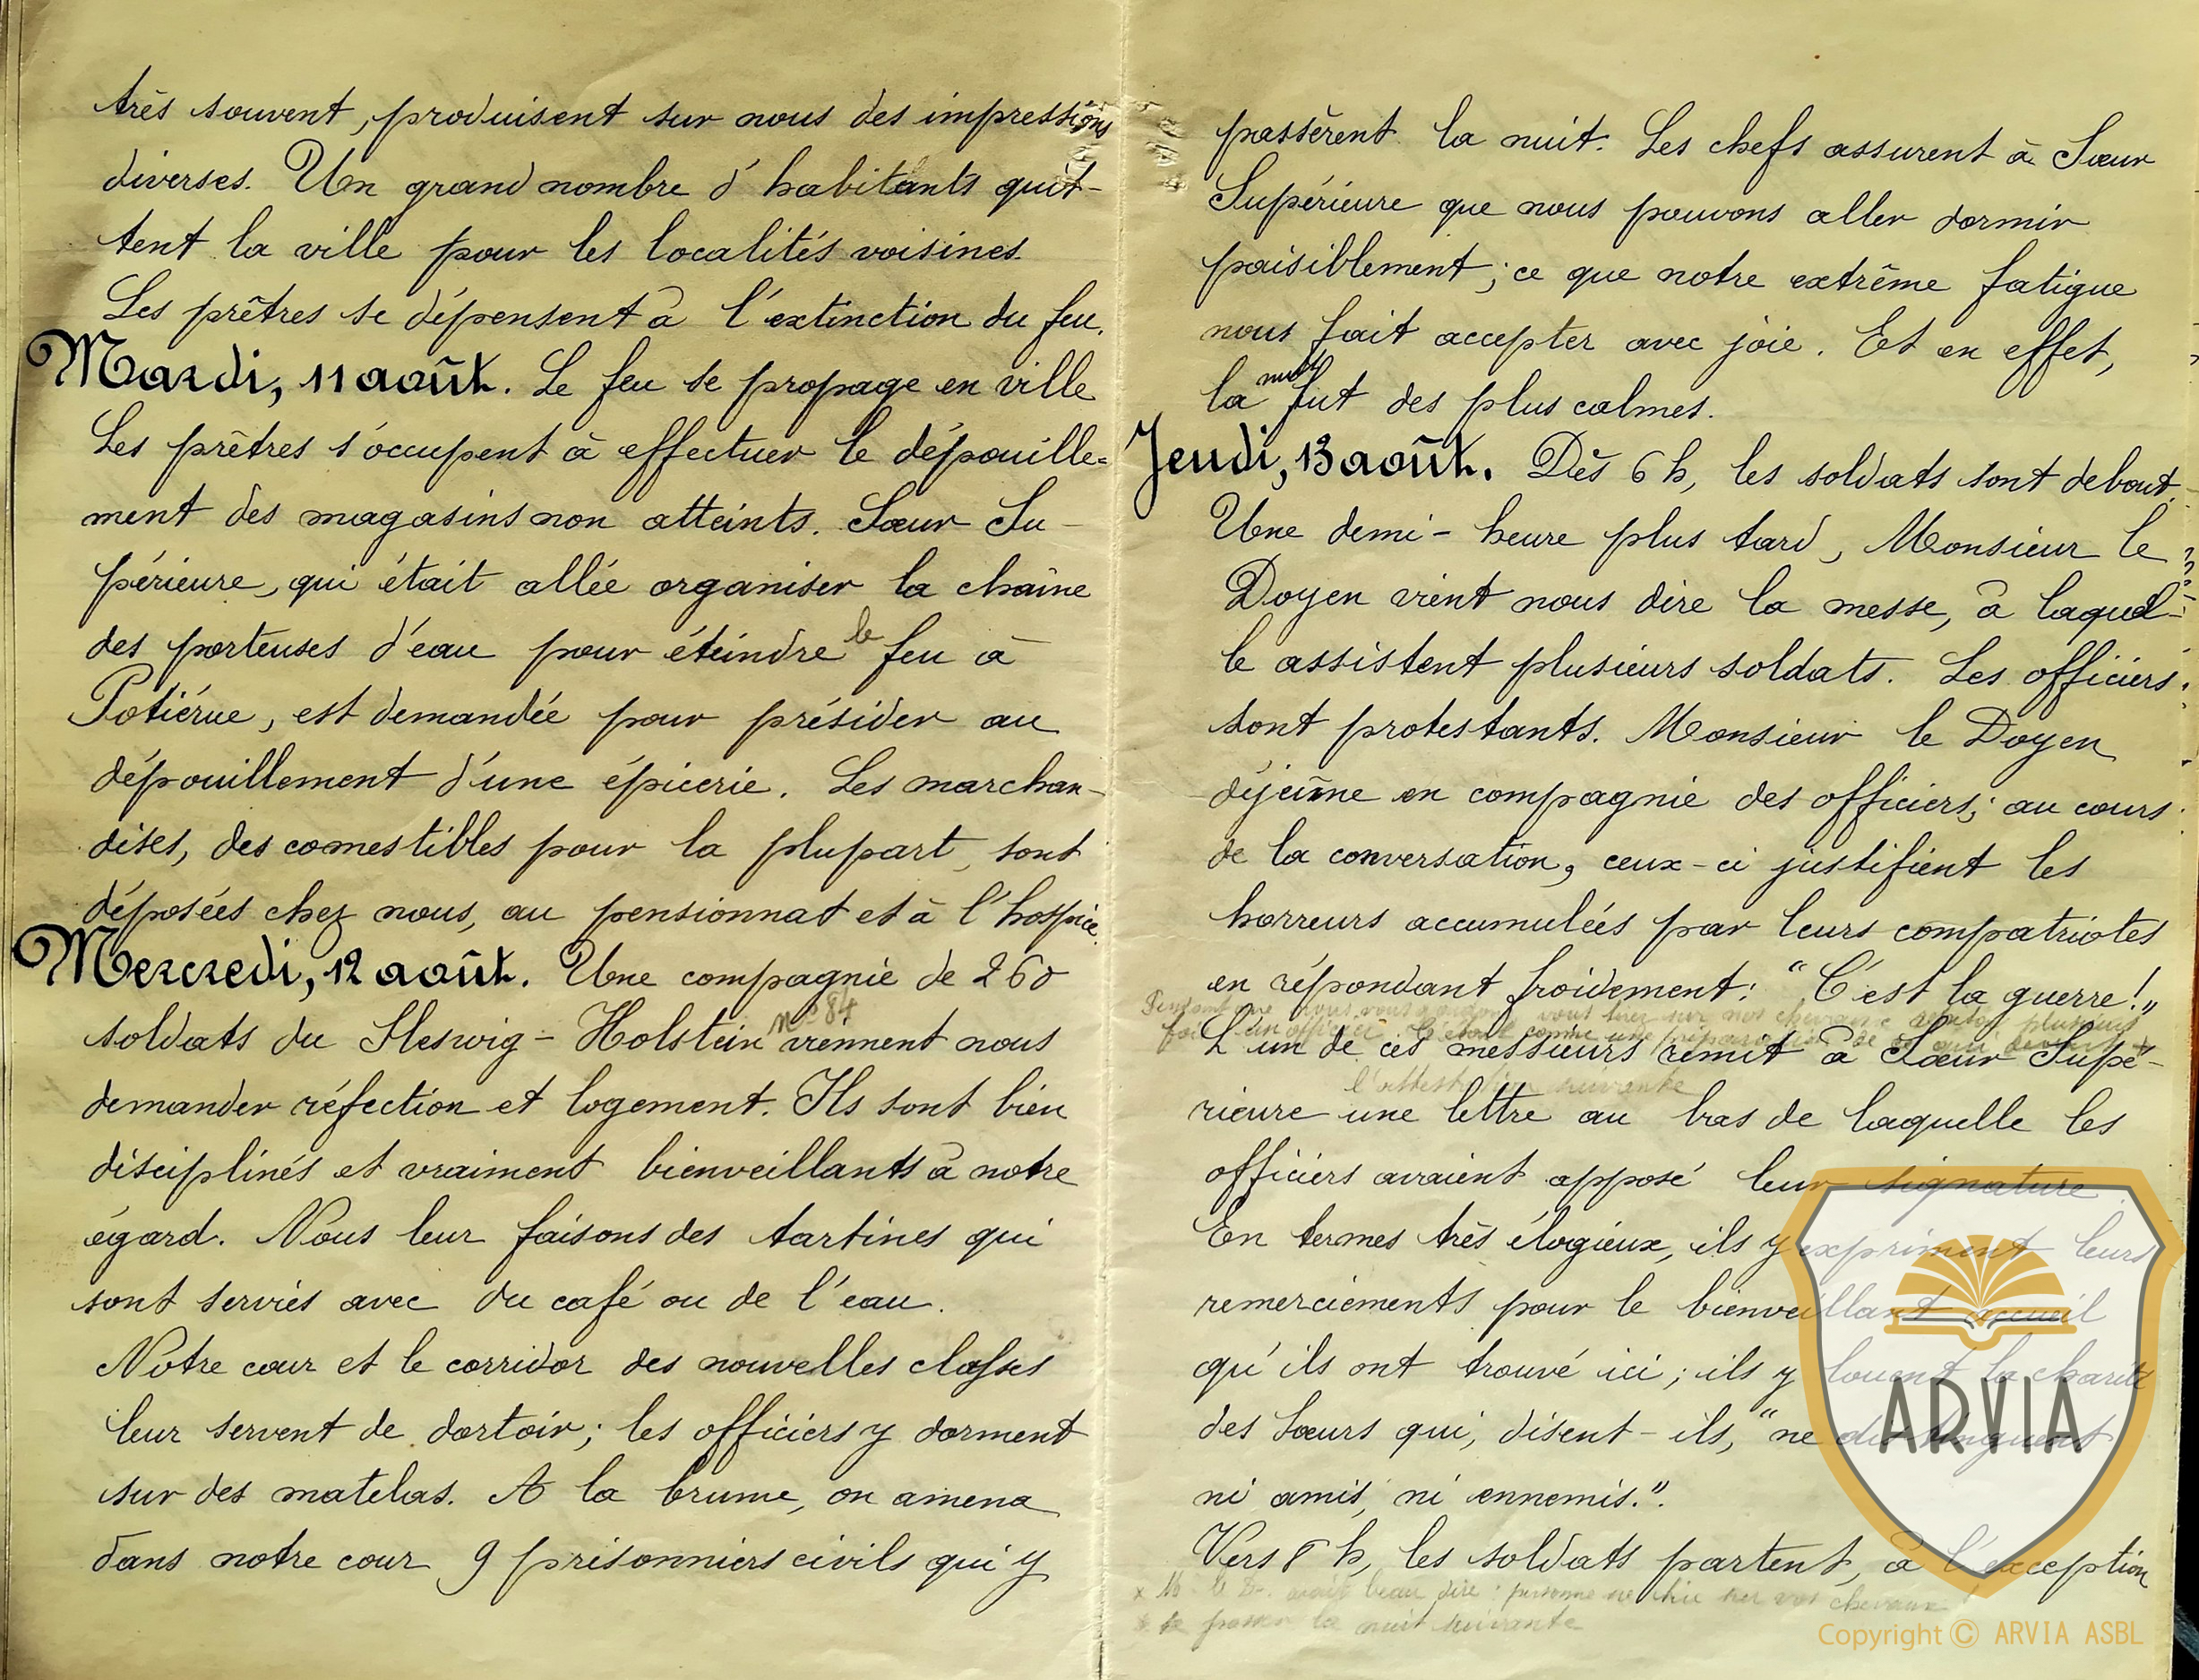 très souvent, produisent sur nous des impressions
diverses. Un grand nombre d'habitants quit-
tent la ville pour les localités voisines.
Les prêtres se dépensent à l'extinction du feu.
Mardi, 11 août. Le feu se propage en ville
Les prêtres s'occupent à effectuer le dépouille=
ment des magasins non atteints. Sœur Su-
périeure, qui était allée organiser la chaîne
des porteuses d'eau pour éteindre le feu à
Potiérue, est demandée pour présider au
dépouillement d'une épicerie. Les marchan-
dises, des comestibles pour la plupart, sont
déposées chez nous, au pensionnat et à l'hospice.
Mercredi, 12 août. Une compagnie de 260
soldats du Sleswig-Holstein n° 84 viennent nous
demander réfection et logement. Ils sont bien
disciplinés et vraiment bienveillants à notre
égard. Nous leur faisons des tartines qui
sont servies avec du café ou de l'eau.
Notre cour et le corridor des nouvelles classes
leur servent de dortoir; les officiers y dorment
sur des matelas. A la brume, on amena
dans notre cour 9 prisonniers civils qui y
passèrent la nuit. Les chefs assurent à Sœur
Supérieure que nous pouvons aller dormir
paisiblement; ce que notre extrême fatigue
nous fait accepter avec joie. Et en effet,
la nuit fut des plus calmes.
Jeudi, 13 août. Dès 6 h, les soldats sont debout.
Une demi-heure plus tard, Monsieur le
Doyen vient nous dire la messe, à laquel-
le assistent plusieurs soldats. Les officiers
sont protestants. Monsieur le Doyen
déjeûne en compagnie des officiers; au cours
de la conversation, ceux-ci justifient les
horreurs accumulées par leurs compatriotes
en répondant froidement: "C'est la guerre!"
vous tirez sur nos chevaux plusieurs
un officier comme une
L'un de ces messieurs remit à Sœur Supé-
l'attestation suivante
rieure une lettre au bas de laquelle les
officiers avaient apposé leur signature.
En termes très élogieux, ils y expriment leurs
remerciements pour le bienveillant accueil
qu'ils ont trouvé ici; ils y louent la charité
des Sœurs qui, disent-ils, "ne distinguent
ni amis, ni ennemis.".
Vers 8 h, les soldats partent, à l'exception
x M. le D. avait beau dire: personne ne tire sur vos chevaux!
passer la nuit suivante
ARVIA
Copyright © ARVIA ASBL